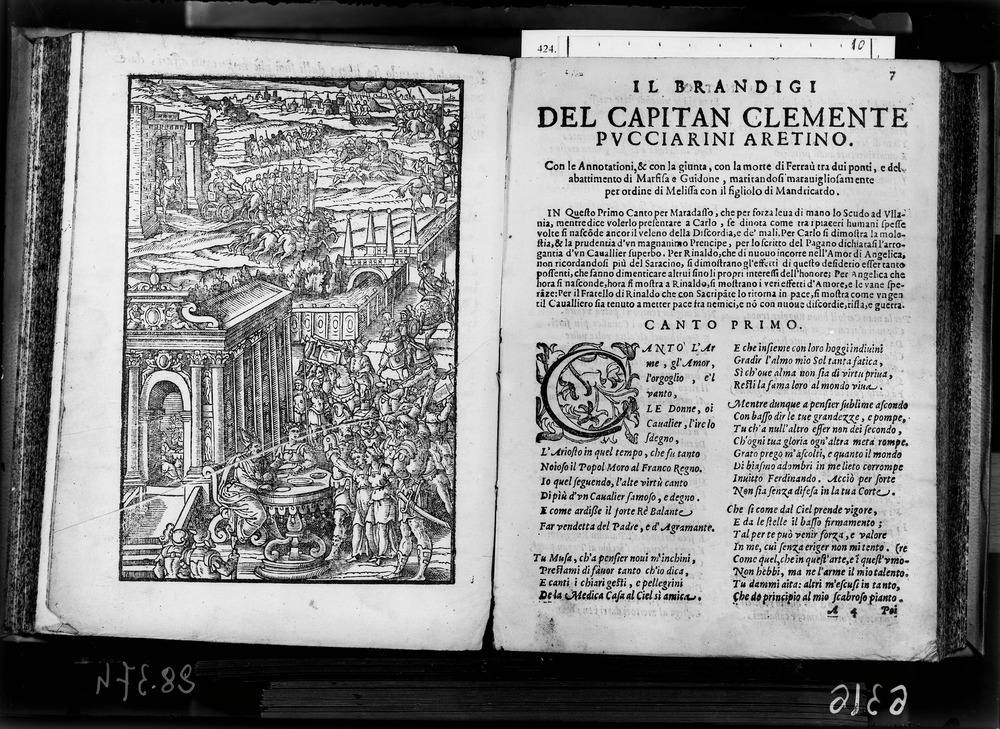 424.
10
7
IL BRANDIGI
DEL CAPITAN CLEMENTE
PVCCIARINI ARETINO.
Con le Annotationi, & con la giunta, con la morte di Ferraù tra dui ponti, e del
abattimento di Marfisa e Guidone, maritandosi marauigliosamente
per ordine di Melissa con il figliolo di Mandricardo.
IN Questo Primo Canto per Maradasso, che per forza leua di mano lo Scudo ad Vlla-
nia, mentre dice volerlo presentare a Carlo, se dinota come tra i piaceri humani spesse
volte si nascōde ancor il veleno della Discordia, e de' mali. Per Carlo si dimostra la mole-
stia, & la prudentia d'vn magnanimo Prencipe, per lo scritto del Pagano dichiarasi l'arro-
gantia d'vn Cauallier superbo. Per Rinaldo, che di nuouo incorre nell'Amor di Angelica,
non ricordandosi più del Saracino, si dimostrano gl'effetti di questo desiderio esser tanto
possenti, che fanno dimenticare altrui sino li propri interessi dell'honore; Per Angelica che
hora si nasconde, hora si mostra a Rinaldo, si mostrano i veri effetti d'Amore, e le vane spe-
rāze: Per il Fratello di Rinaldo che con Sacripāte lo ritorna in pace, si mostra come vn gen
til Caualliero sia tenuto a metter pace fra nemici, e nō con nuoue discordie, rissa, e guerra.
CANTO PRIMO.
CANTO' L'Ar
me, gl'Amor,
l'orgoglio, e'l
vanto,
LE Donne, oi
Caualier, l'ire lo
sdegno,
L'Ariosto in quel tempo, che fu tanto
Noioso il Popol Moro al Franco Regno.
Io quel seguendo, l'alte virtù canto
Di più d'vn Caualier famoso, e degno.
E come ardisse il forte Rè Balante
Far vendetta del Padre, e d'Agramante.
Tu Musa, ch'a pensier noui m'inchini,
Prestami di fauor tanto ch'io dica,
E canti i chiari gesti, e pellegrini
De la Medica Casa al Ciel sì amica.
E che insieme con loro hoggi indiuini
Gradir l'almo mio Sol tanta fatica,
Sì ch'oue alma non sia di virtù priua,
Resti la fama loro al mondo viua.
Mentre dunque a pensier sublime ascondo
Con basso dir le tue grandezze, e pompe,
Tu ch'a null'altro esser non dei secondo,
Ch'ogni tua gloria ogn'altra meta rompe.
Grato prego m'ascolti, e quanto il mondo
Di biasmo adombri in me lieto corrompe
Inuitto Ferdinando. Acciò per sorte
Non sia senza difesa in la tua Corte.
Che si come dal Ciel prende vigore,
E da le stelle il basso firmamento;
Tal per te può venir forza, e valore
In me, cui senza eriger non mi tento. (re
Come quel, che in quest'arte, e i quest'vmo-
Non hebbi, ma ne l'arme il mio talento.
Tu dammi aita: altri m'escusi in tanto,
Che do principio al mio scabroso pianto.
A 4 Poi
28.374
6316